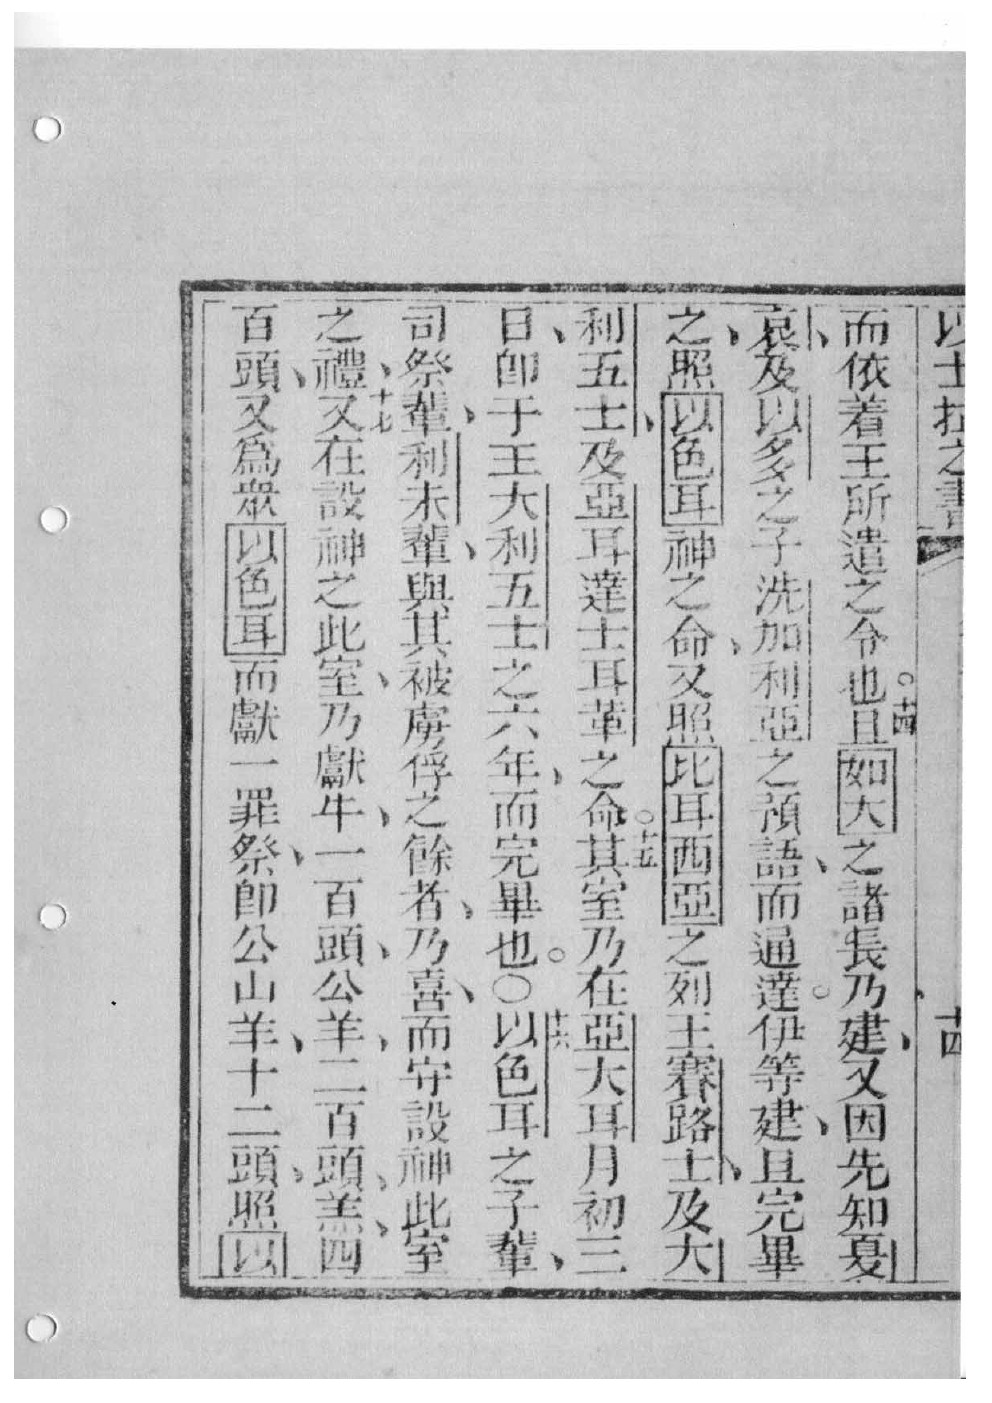 以士拉之書 十四
而依着王所遣之令也。十四且如大之諸長乃建、又因先知夏
哀、及以多之子洗加利亞之預語、而通達。伊等建、且完畢
之、照以色耳神之命、又照比耳西亞之列王賽路士、及大
利五士、及亞耳達士耳革之命。○十五其室乃在亞大耳月初三
日、卽于王大利五士之六年、而完畢也。○十六以色耳之子輩、
司祭輩、利未輩、與其被虜俘之餘者、乃喜、而守設神此室
之禮、十七又在設神之此室、乃獻牛、一百頭、公羊、二百頭、羔、四
百頭、又爲眾以色耳而獻一罪祭、卽公山羊、十二頭、照以